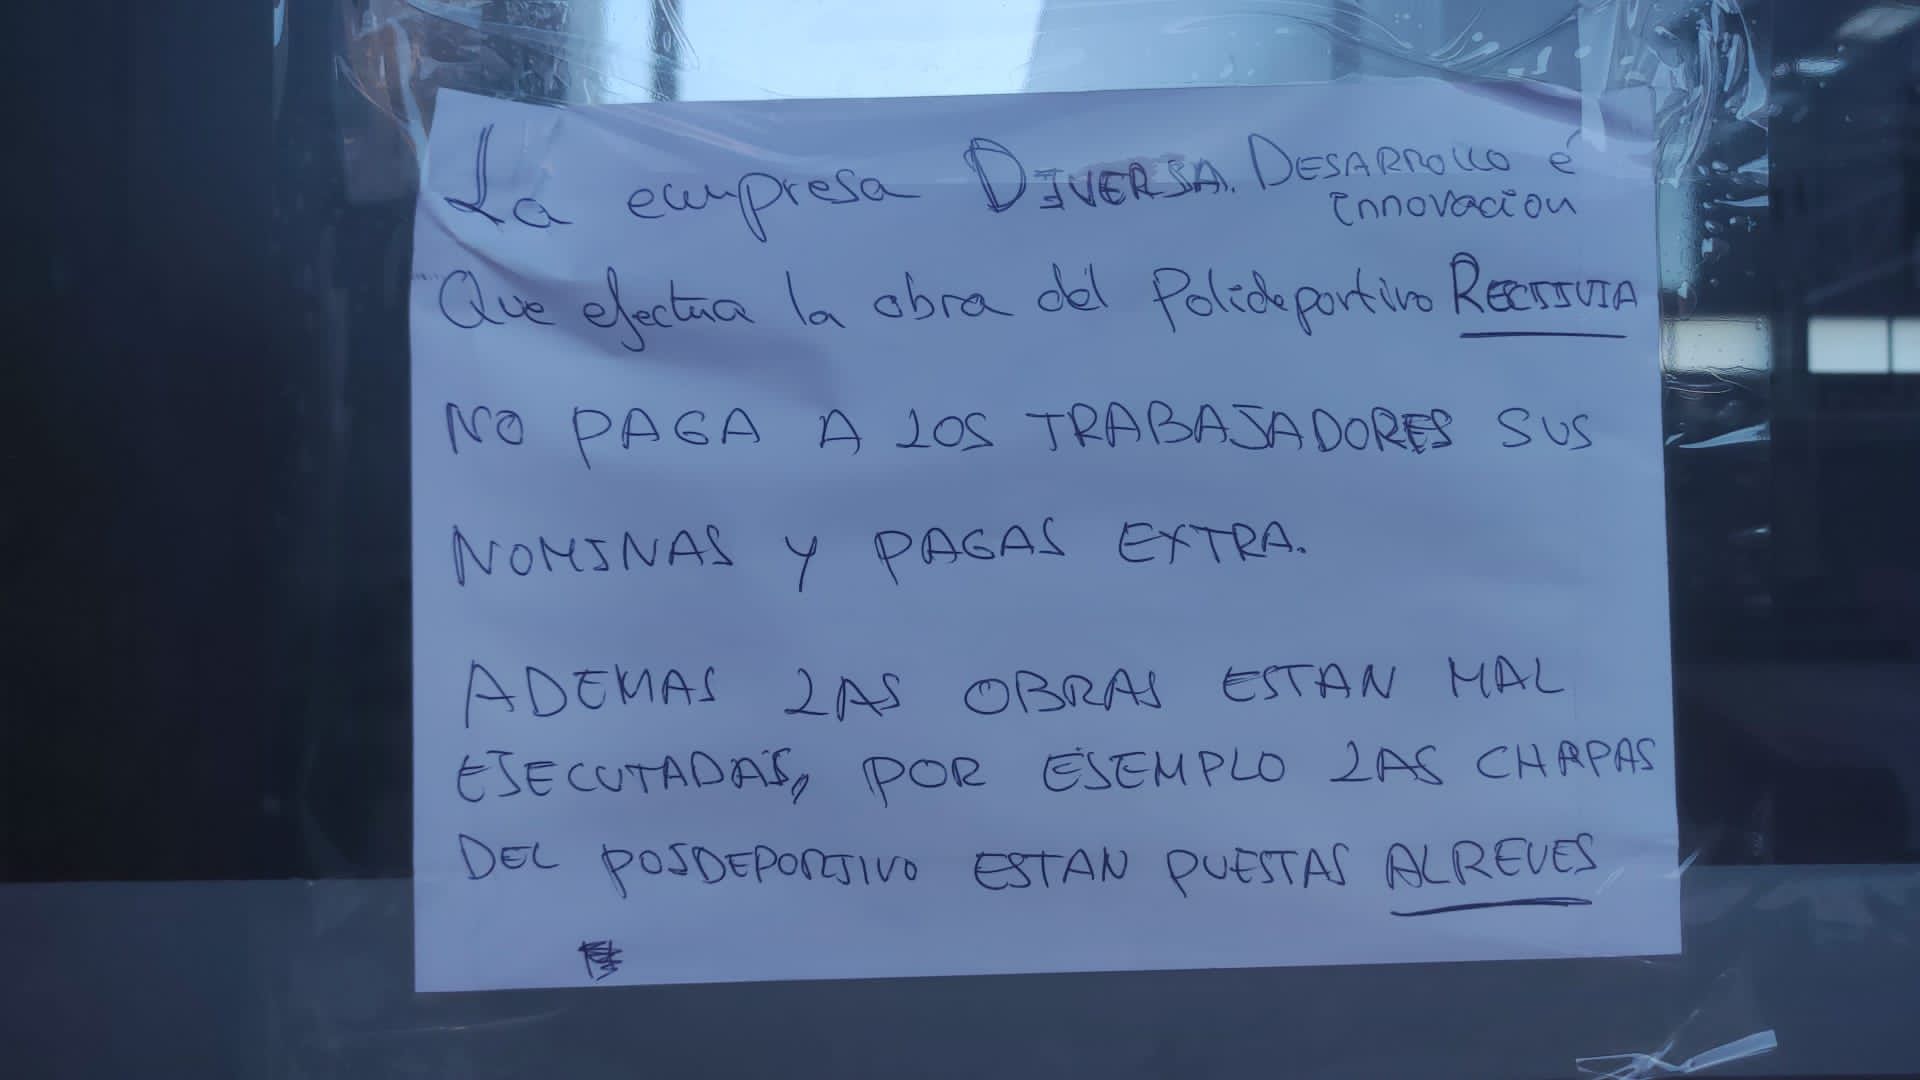 La empresa DIVERSA. DESARROLLO é
innovacion
Que efectua la obra del Polideportivo
NO PAGA A LOS TRABAJADORES SUS
NOMINAS Y PAGAS EXTRA.
ADEMAS LAS OBRAS ESTAN MAL
EJECUTADAS, POR EJEMPLO LAS CHAPAS
DEL POSDEPORTIVO ESTAN PUESTAS ALREVES